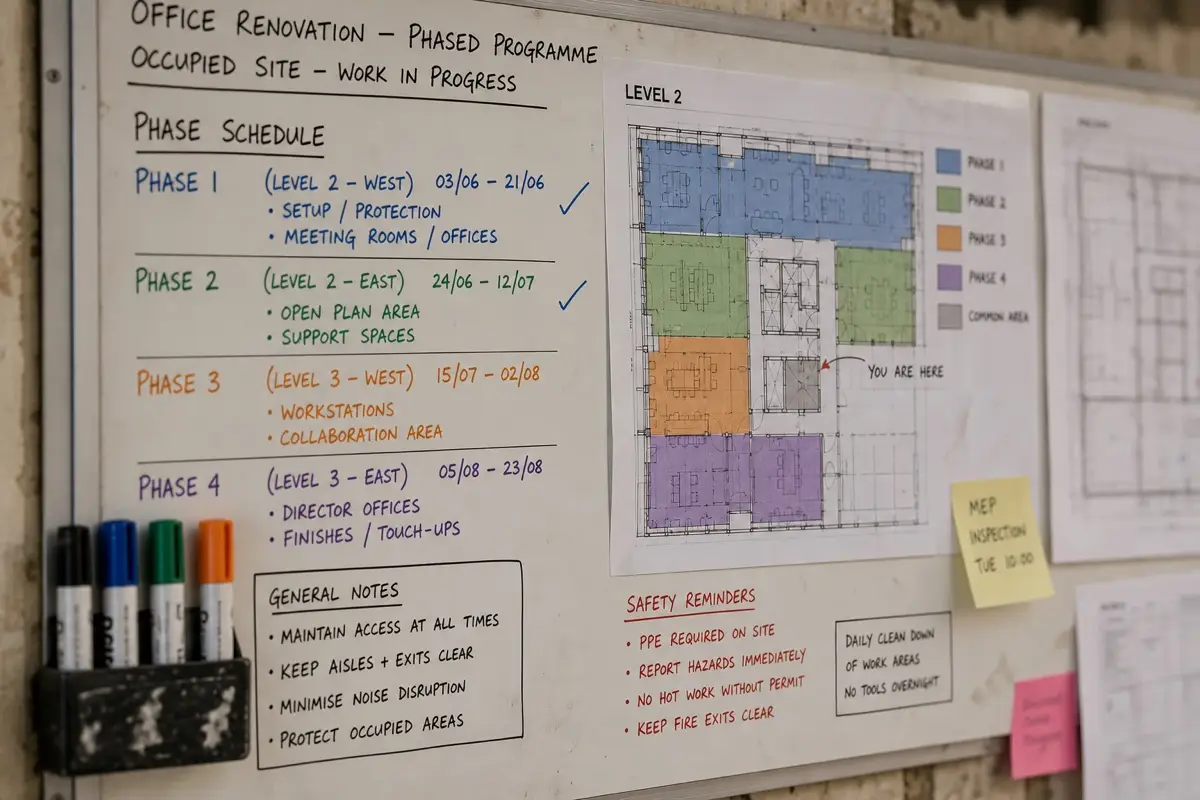 OFFICE RENOVATION – PHASED PROGRAMME
OCCUPIED SITE – WORK IN PROGRESS
PHASE SCHEDULE
PHASE 1 (LEVEL 2 – WEST) 03/06 – 21/06 ✓
• SETUP / PROTECTION
• MEETING ROOMS / OFFICES
PHASE 2 (LEVEL 2 – EAST) 24/06 – 12/07 ✓
• OPEN PLAN AREA
• SUPPORT SPACES
PHASE 3 (LEVEL 3 – WEST) 15/07 – 02/08
• WORKSTATIONS
• COLLABORATION AREA
PHASE 4 (LEVEL 3 – EAST) 05/08 – 23/08
• DIRECTOR OFFICES
• FINISHES / TOUCH-UPS
GENERAL NOTES
• MAINTAIN ACCESS AT ALL TIMES
• KEEP AISLES + EXITS CLEAR
• MINIMISE NOISE DISRUPTION
• PROTECT OCCUPIED AREAS
LEVEL 2
PHASE 1
PHASE 2
PHASE 3
PHASE 4
COMMON AREA
YOU ARE HERE
MEP
INSPECTION
TUE 10:00
SAFETY REMINDERS
• PPE REQUIRED ON SITE
• REPORT HAZARDS IMMEDIATELY
• NO HOT WORK WITHOUT PERMIT
• KEEP FIRE EXITS CLEAR
DAILY CLEAN DOWN
OF WORK AREAS
NO TOOLS OVERNIGHT